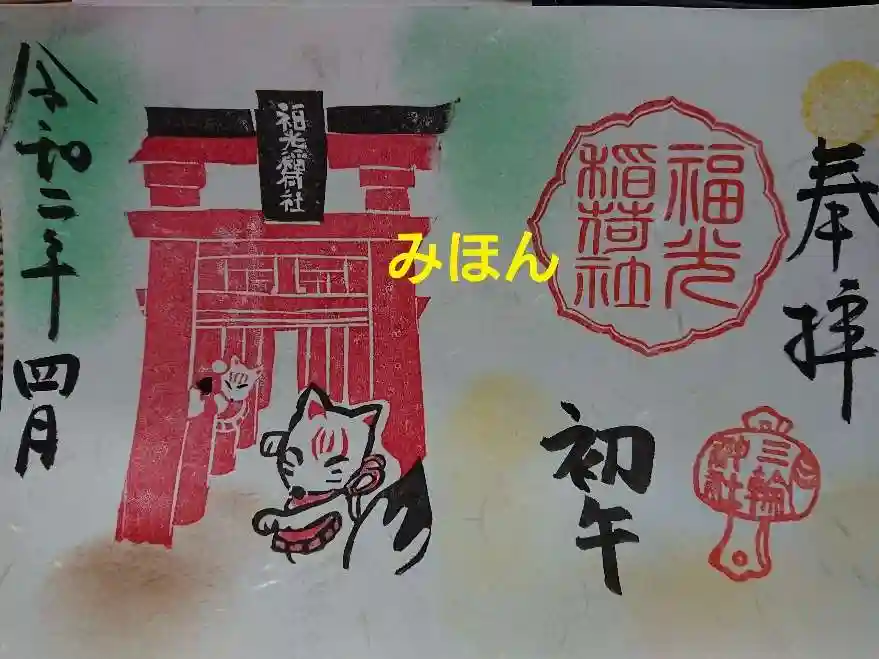 奉拝
福光
稲荷社
三輪
神社
初午
みほん
福光稲荷社
令和二年四月